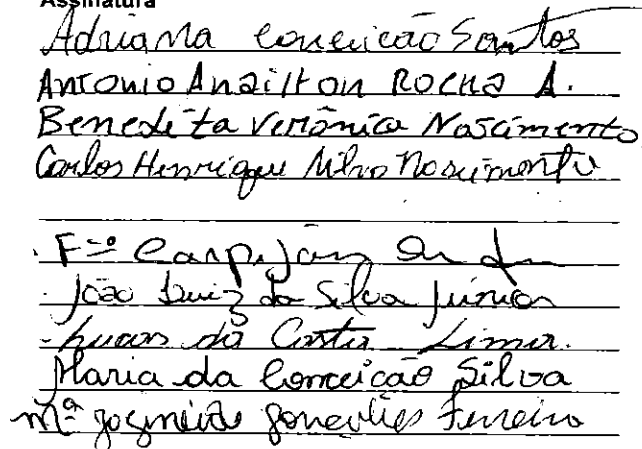 Assinatura
Adriana Conceição Santos
Antonio Anailton Rocha A.
Benedita Verônica Nascimento
Carlos Henrique Silva Nascimento
Fco
João Luiz da Silva Júnior
Lucas da Costa Lima.
Maria da Conceição Silva
Mª Ferreira